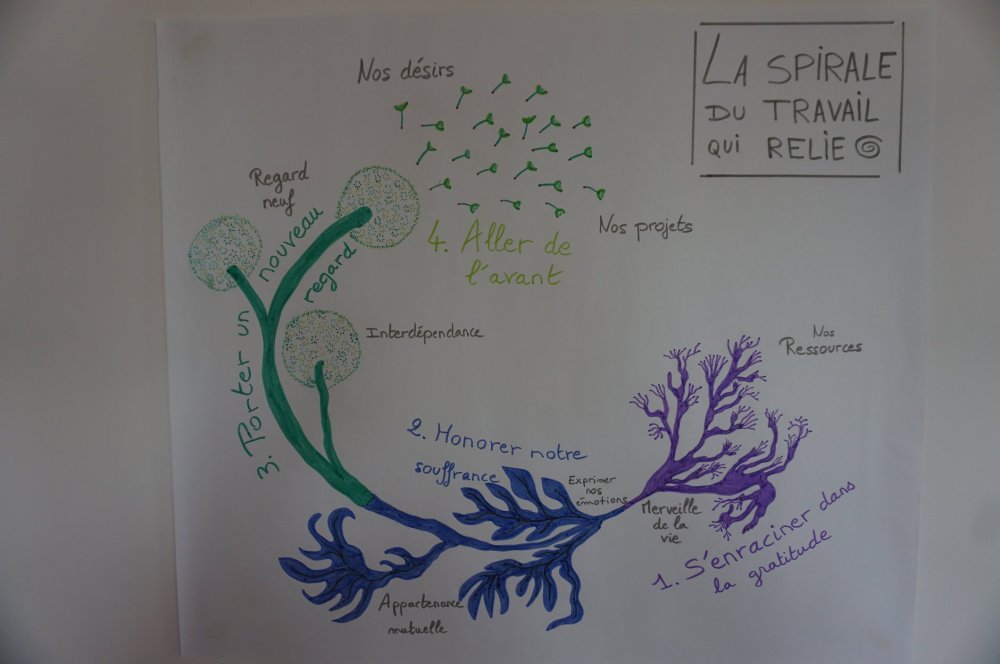 LA SPIRALE
DU TRAVAIL
QUI RELIE
Nos désirs
Regard
neuf
3. Porter un
nouveau
regard
4. Aller de
l'avant
Nos projets
Interdépendance
Nos
Ressources
2. Honorer notre
souffrance
Exprimer
nos
émotions
Merveille
de la
vie
1. S'enraciner dans
la gratitude
Appartenance
mutuelle